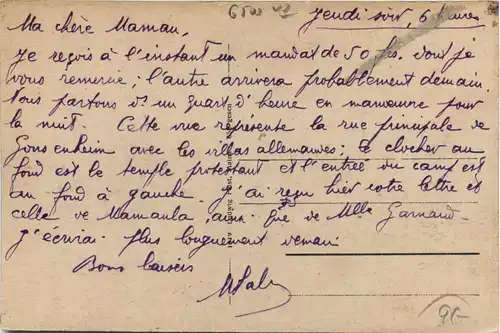 6500
Jeudi soir, 6 heures
Ma chère Maman,
Je reçois à l'instant un mandat de 50 frs. dont je
vous remercie; l'autre arrivera probablement demain.
Nous partons ds un quart d'heure en manœuvre pour
la nuit. Cette vue représente la rue principale de
Gonsenheim avec les villas allemandes; le clocher au
fond est le temple protestant et l'entrée du camp est
au fond à gauche. J'ai reçu hier votre lettre et
celle de Mamaula, ainsi que de Mlle Garnaud.
J'écrirai plus longuement demain
Bons baisers
Ludwig
95-